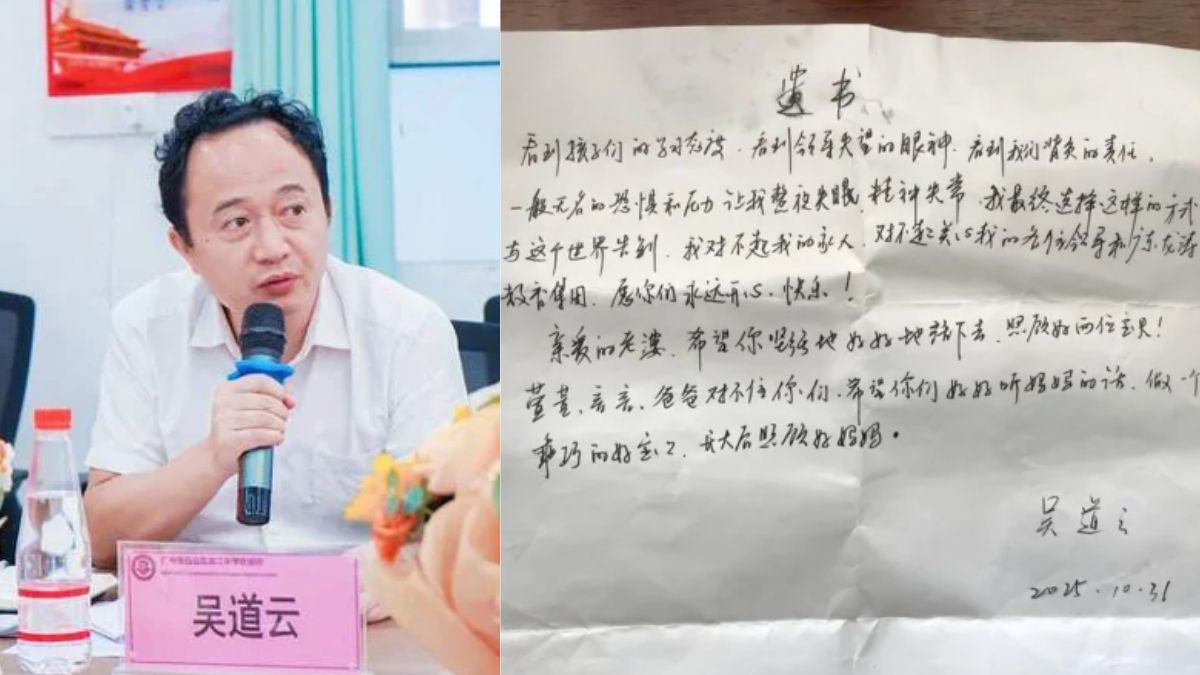 吴道云
遗书
看到孩子们的学习态度、看到领导失望的眼神、看到我们背负的责任,
一般无名的恐惧和压力让我整夜失眠,精神失常,我最终选择这样的方式
与这个世界告别,我对不起我的家人,对不起关心我的各位领导和
愿你们永远开心、快乐!
亲爱的老婆,希望你坚强地好好地活下去,照顾好两位宝贝!
爸爸对不住你们,希望你们好好听妈妈的话,做一个
乖巧的好宝宝,长大后照顾好妈妈。
吴道云
2025.10.31